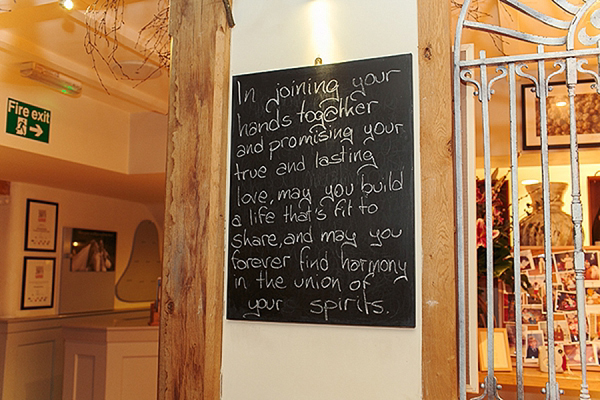 Fire exit
In joining your
hands together
and promising your
true and lasting
love, may you build
a life that's fit to
share, and may you
forever find harmony
in the union of
your spirits.